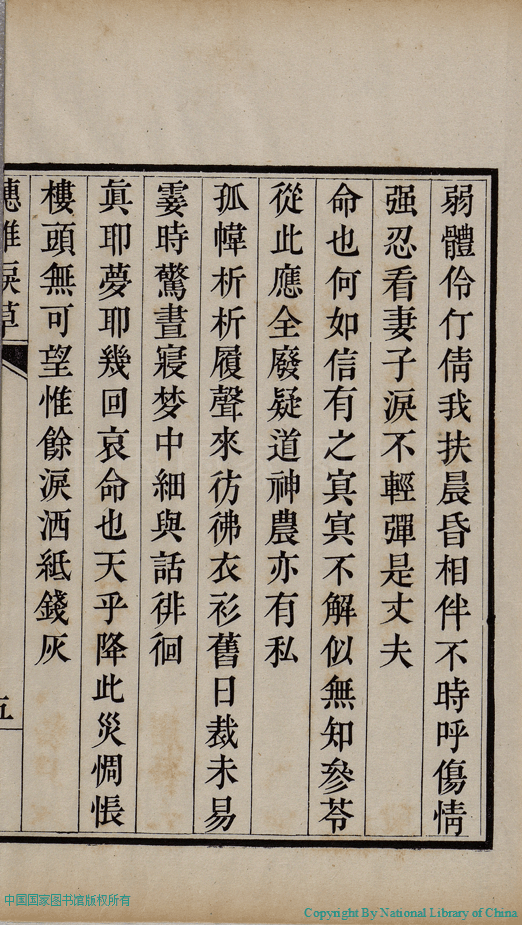 弱體伶仃倩我扶晨昏相伴不時呼傷情
强忍看妻子淚不輕彈是丈夫
命也何如信有之冥冥不解似無知參苓
從此應全廢疑道神農亦有私
孤幃析析履聲來彷彿衣衫舊日裁未易
霎時驚晝寢梦中細與話徘徊
眞耶夢耶幾回哀命也天乎降此災惆悵
樓頭無可望惟餘淚洒紙錢灰
帷淚草
五
中国国家图书馆版权所有
Copyright By National Library of China